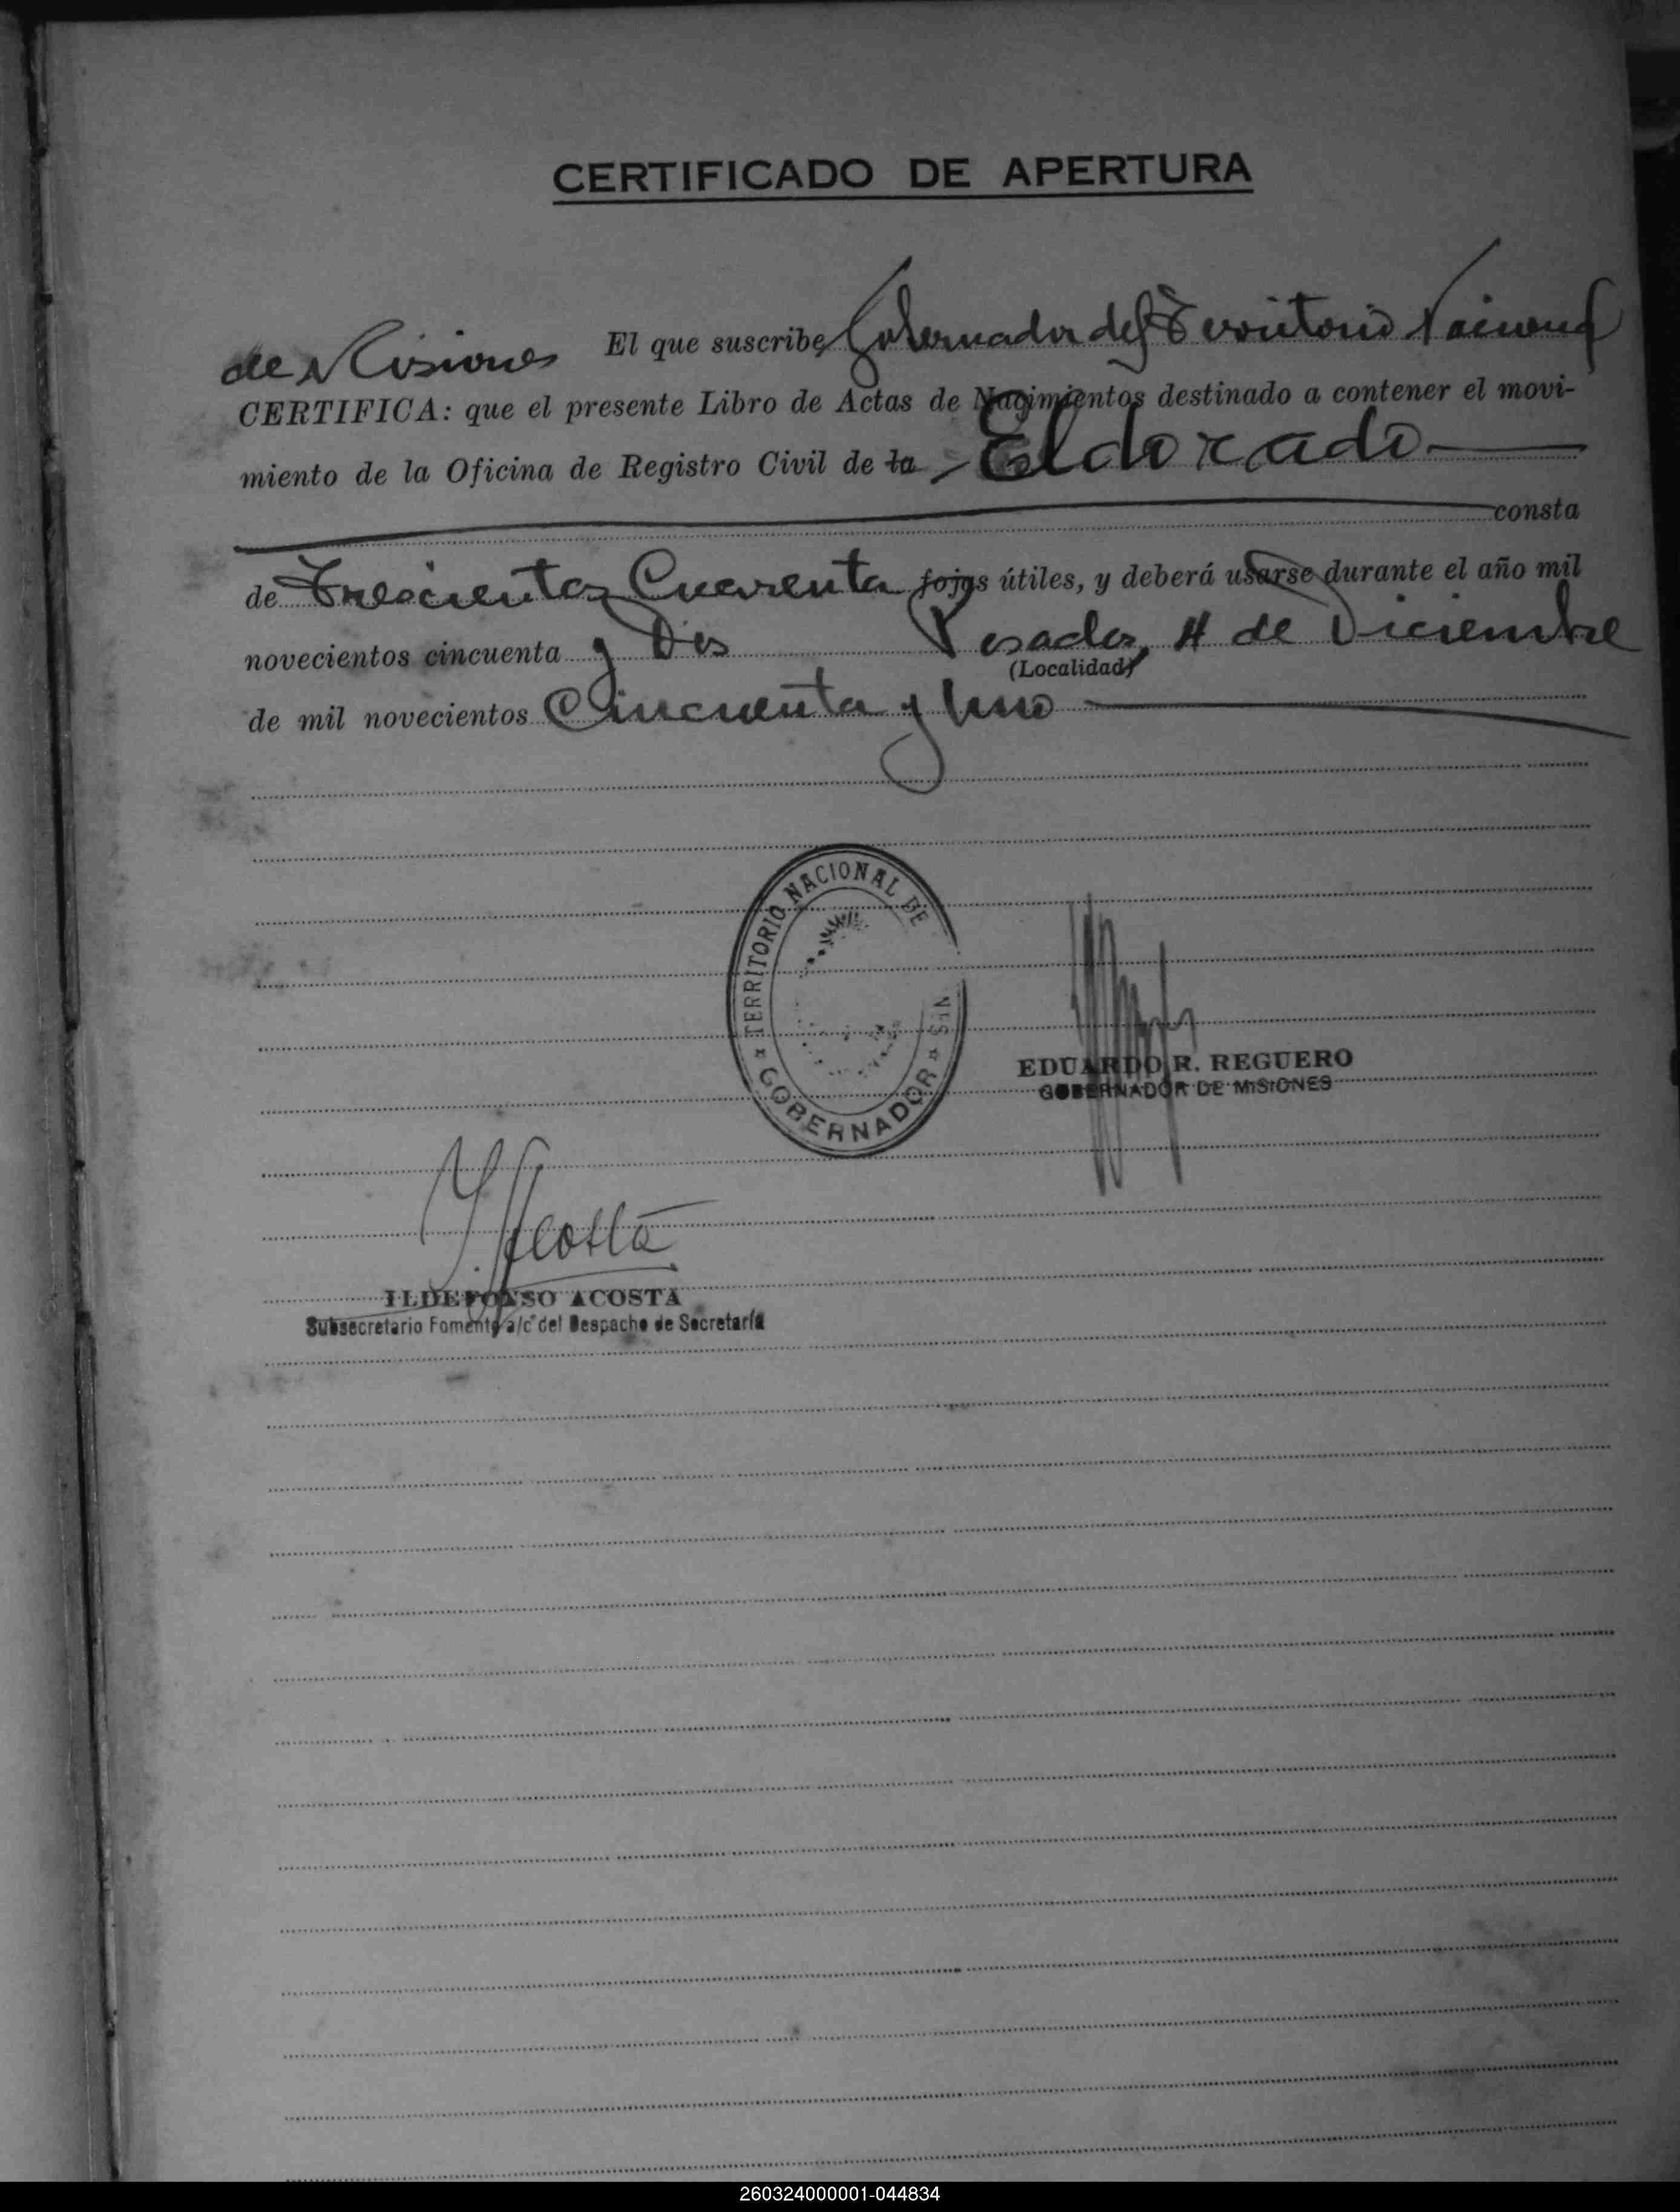 CERTIFICADO DE APERTURA
El que suscribe Gobernador del Territorio Nacional
de Misiones
CERTIFICA: que el presente Libro de Actas de Nacimientos destinado a contener el movi-
miento de la Oficina de Registro Civil de la Eldorado
consta
de Trescientas Cuarenta fojas útiles, y deberá usarse durante el año mil
novecientos cincuenta y Dos Posadas, 4 de Diciembre
(Localidad)
de mil novecientos Cincuenta y Uno
TERRITORIO NACIONAL DE
GOBERNADOR
EDUARDO R. REGUERO
GOBERNADOR DE MISIONES
I. Acosta
ILDEFONSO ACOSTA
Subsecretario Fomento a/c del Despacho de Secretaría
260324000001-044834